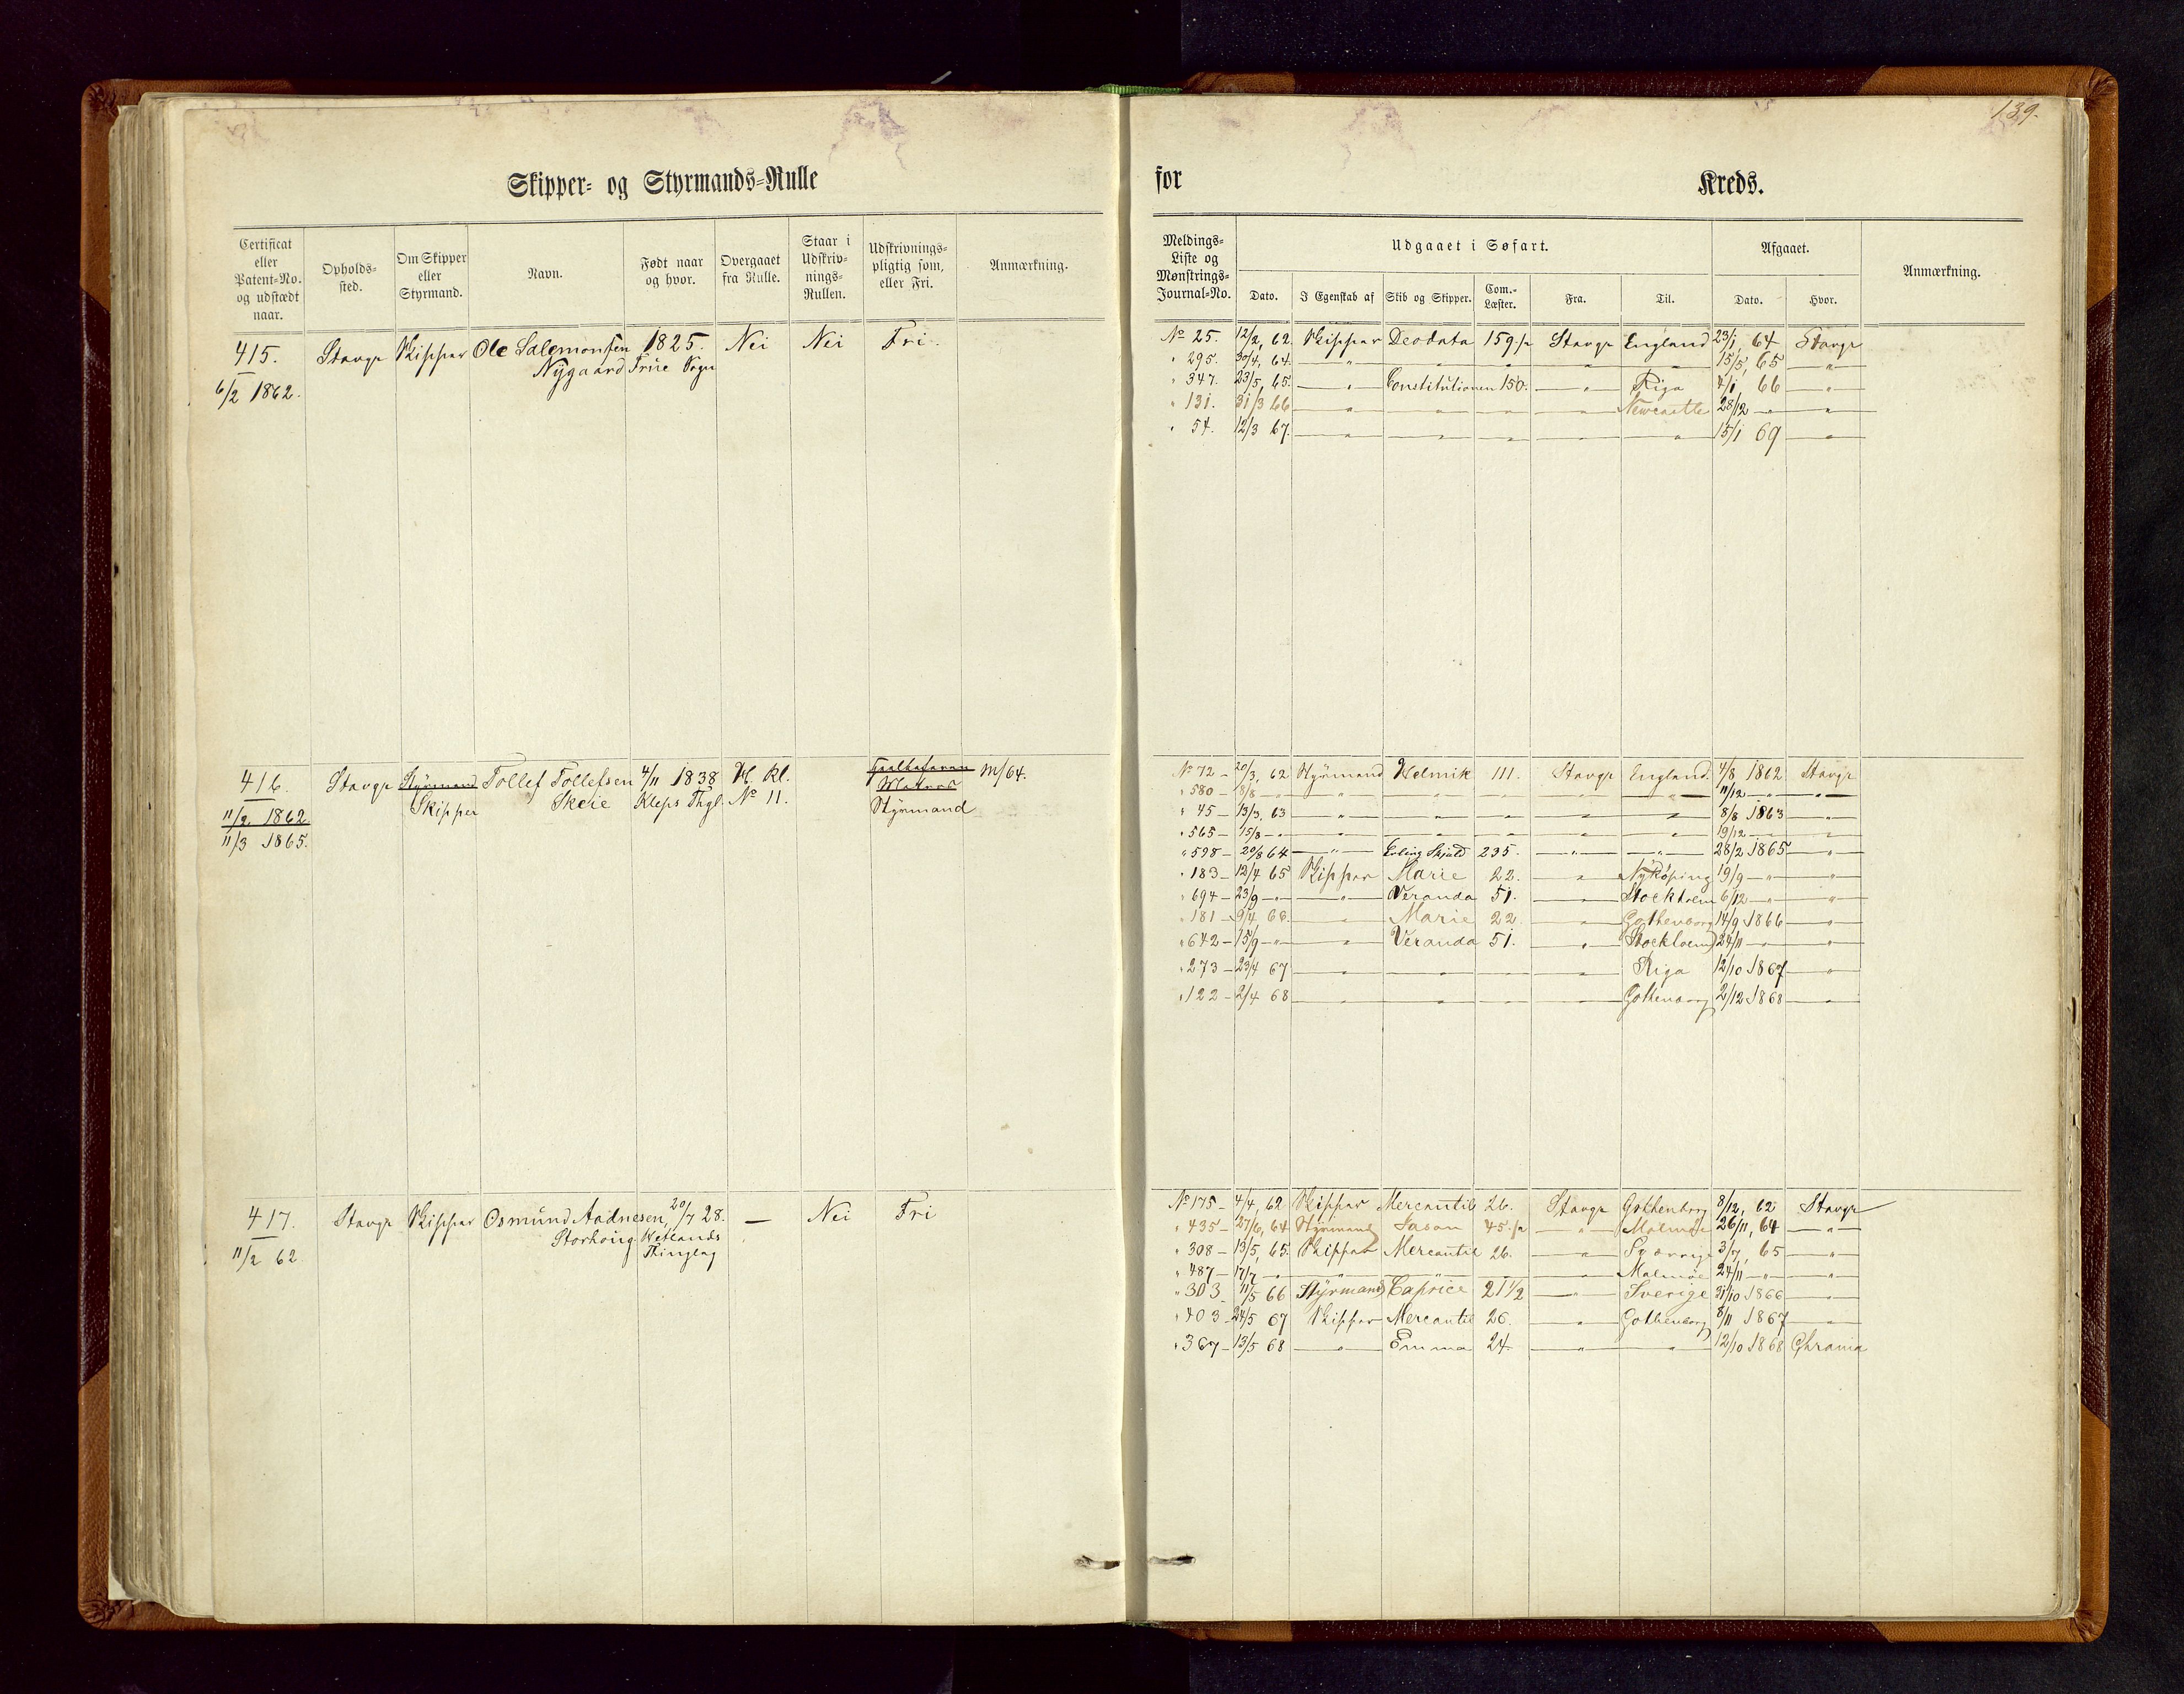 139.
Skipper- og Styrmands-Rulle for Kreds.
Certificat eller Patent-No. og udstædt naar. | Opholds-sted. | Om Skipper eller Styrmand. | Navn. | Født naar og hvor. | Overgaaet fra Rulle. | Staar i Udskriv-nings-Rullen. | Udskrivnings-pligtig som, eller Fri. | Anmærkning.
Meldings-Liste og Mønstrings-Journal-No. | Udgaaet i Søfart. | Afgaaet. | Anmærkning.
Dato. | I Egenskab af | Skib og Skipper. | Com.-Læster. | Fra. | Til. | Dato. | Hvor.
415. Stavgr Skipper Ole Salemonsen 1825. Nei Nei Fri.
Nygaard Friie Sogn
6/2 1862.
No 25. 12/2, 62. Skipper Deodata 159 Stavgr England 23/1, 64 Stavgr
" 295. 30/4, 64. " " " " " 15/5, 65 "
" 347. 23/5, 65. " Constitutionen 150. " Riga 4/1 66 "
" 131. 31/3 66 " " " " Newcastle 28/12 " "
" 54. 12/3 67. " " " " " 15/1 69 "
416. Stavgr Styrmand Tollef Tollefsen 4/11 1838 H. Kl. m/64.
Skipper Skeie Kleps Thgl. No 11. Matros
11/2 1862 Styrmand
11/3 1865.
No 72 - 20/3, 62 Styrmand Helmik 111. Stavgr England. 4/8 1862 Stavgr
" 580 - 8/8 - " " " " " " " 11/12 - " "
" 45 - 13/3, 63 " " " " " 8/8 1863 "
" 565 - 15/8 - " " " " " " 19/12 "
" 598 - 20/8 64 " Erling Skjald 235. " " 28/2 1865 "
" 183 - 12/4 65 Skipper Marie 22. " Nyköping 19/9 - " "
" 694 - 23/9 - " " Veranda 51. " Stockholm 6/12 - " "
" 181 - 9/4 66. " Marie 22. " Gothenborg 14/9 1866 "
" 642 - 15/9 - " " Veranda 51. " Stockholm 24/11 - " "
" 273 - 23/4 67 " " " " Riga 12/10 1867 "
" 122 - 2/4 68 " " " " Gothenborg 2/12 1868 "
417. Stavgr Skipper Osmund Aadnesen, 20/7 28. — Nei Fri
Storhoug Hetlands
11/2 62 Thinglag
No 175 - 4/4, 62 Skipper Mercantil 26. Stavgr Gothenborg 8/12, 62 Stavgr
" 435 - 27/6, 64 Styrmand Jason 45 " Malmøe 26/11, 64 "
" 308 - 13/5, 65. Skipper Mercantil 26. " Sverrige 3/7, 65 "
" 487 - 17/7 - " " " " " Malmöe 24/11 - " "
" 303 11/5 66 Styrmand Caprice 21 1/2 " Sverige 31/10 1866 "
" 403 - 24/5 67 Skipper Mercantil 26. " Gothenborg 8/11 1867 "
" 367 - 13/5 68 " Emma 24 " " 12/10 1868 Chrania